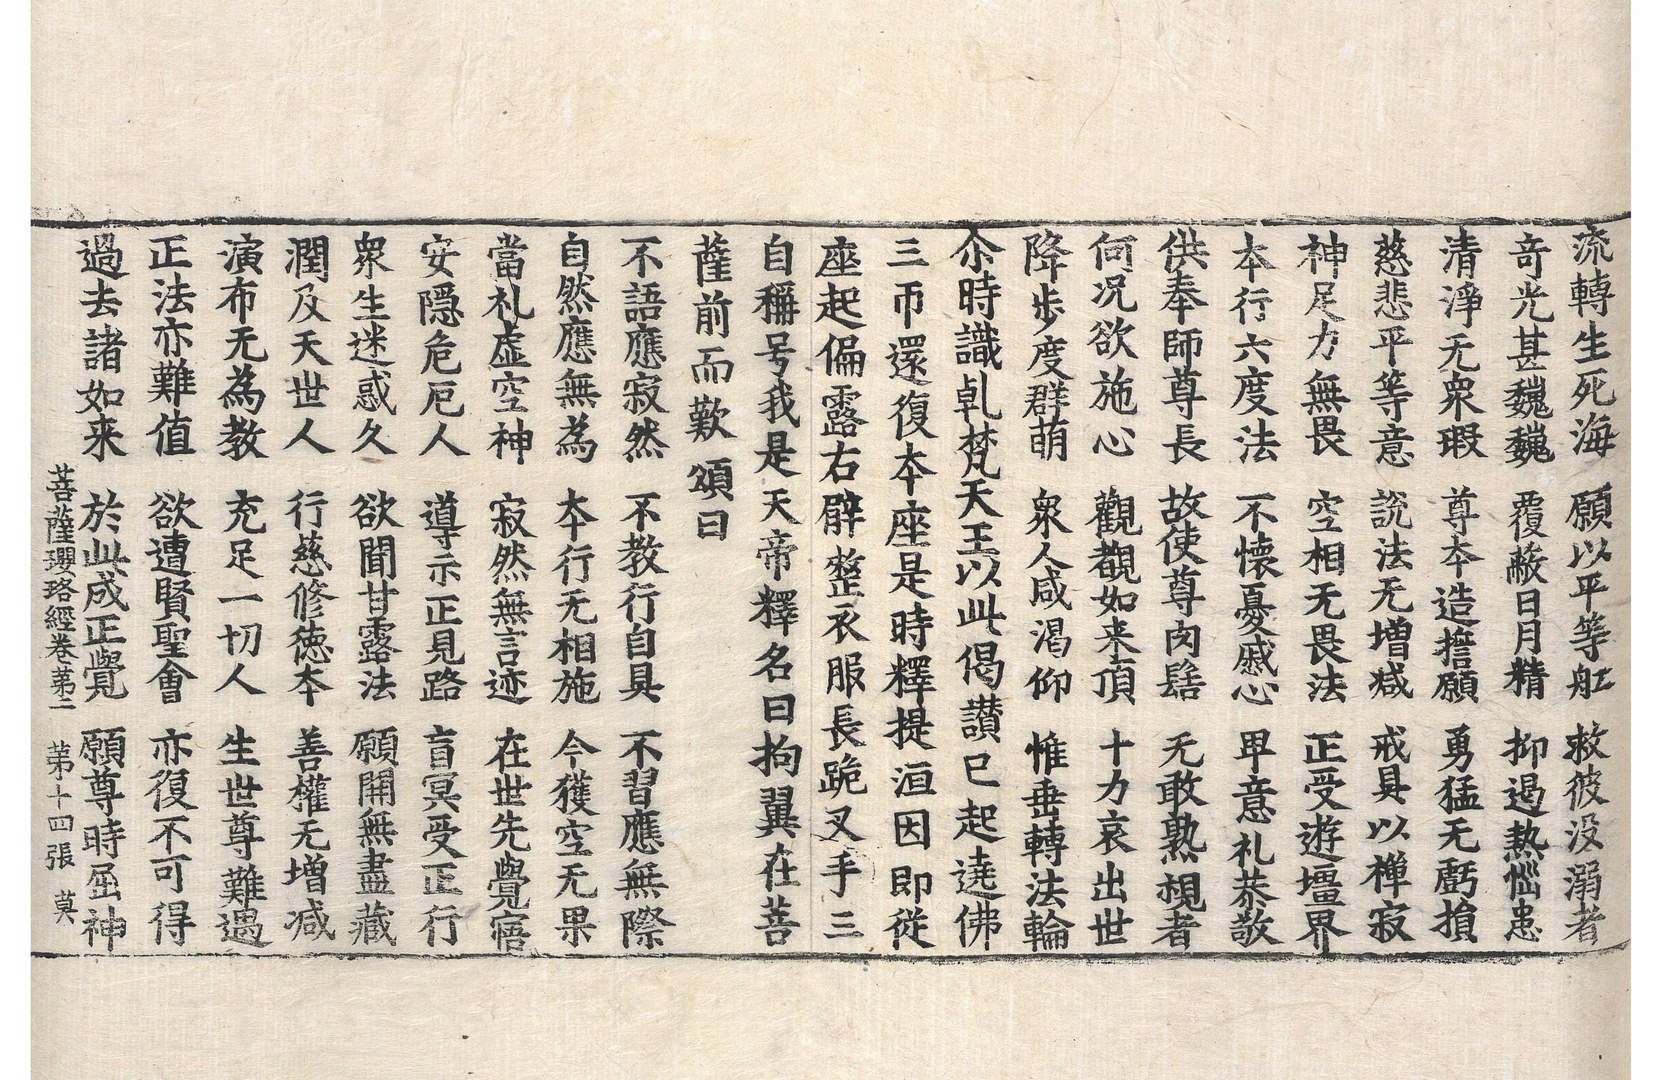 流轉生死海　願以平等舡　救彼没溺者
奇光甚巍巍　覆蔽日月精　抑遏熱惱患
清淨无衆瑕　尊本造擔願　勇猛无虧損
慈悲平等意　說法无增减　戒具以禅寂
神足力無畏　空相无畏法　正受遊壃界
本行六度法　不懷憂慼心　甲意礼恭敬
供奉師尊長　故使尊肉髻　无敢熟視者
何况欲施心　觀覩如来頂　十力哀出世
降步度群萌　衆人咸渴仰　惟垂轉法輪
尒時識乹梵天王以此偈讃已起遶佛
三帀還復本座是時釋提洹因即從
座起偏露右臂整衣服長跪叉手三
自稱号我是天帝釋名曰拘翼在菩
薩前而歎頌曰
不語應寂然　不教行自具　不習應無際
自然應無為　本行无相施　今獲空无果
當礼虛空神　寂然無言迹　在世先覺寤
安隱危厄人　導示正見路　盲冥受正行
衆生迷惑久　欲聞甘露法　願開無盡藏
潤及天世人　行慈修徳本　善權无增减
演布无為教　充足一切人　生世尊難遇
正法亦難值　欲遭賢聖會　亦復不可得
過去諸如来　於此成正覺　願尊時屈神
菩薩瓔珞經卷苐二　苐十四張　莫